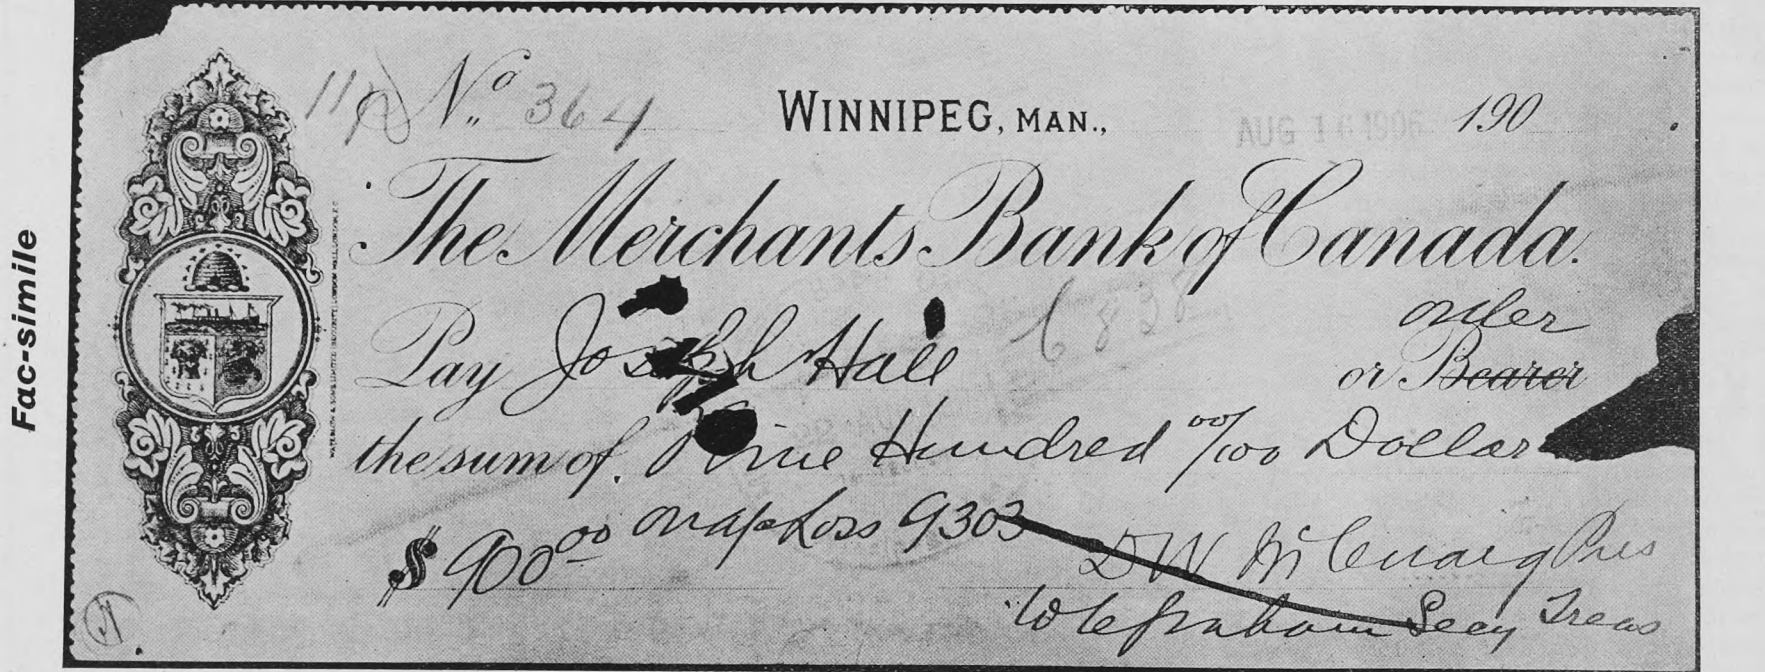 Fac-simile
No. 364
WINNIPEG, MAN., AUG 16 1906 190
The Merchants Bank of Canada.
6838
order
Pay Joseph Hall or Bearer
the sum of Nine Hundred 00/100 Dollar
$900.00 Loss 9303
D W McCuaig Pres
Secy Treas